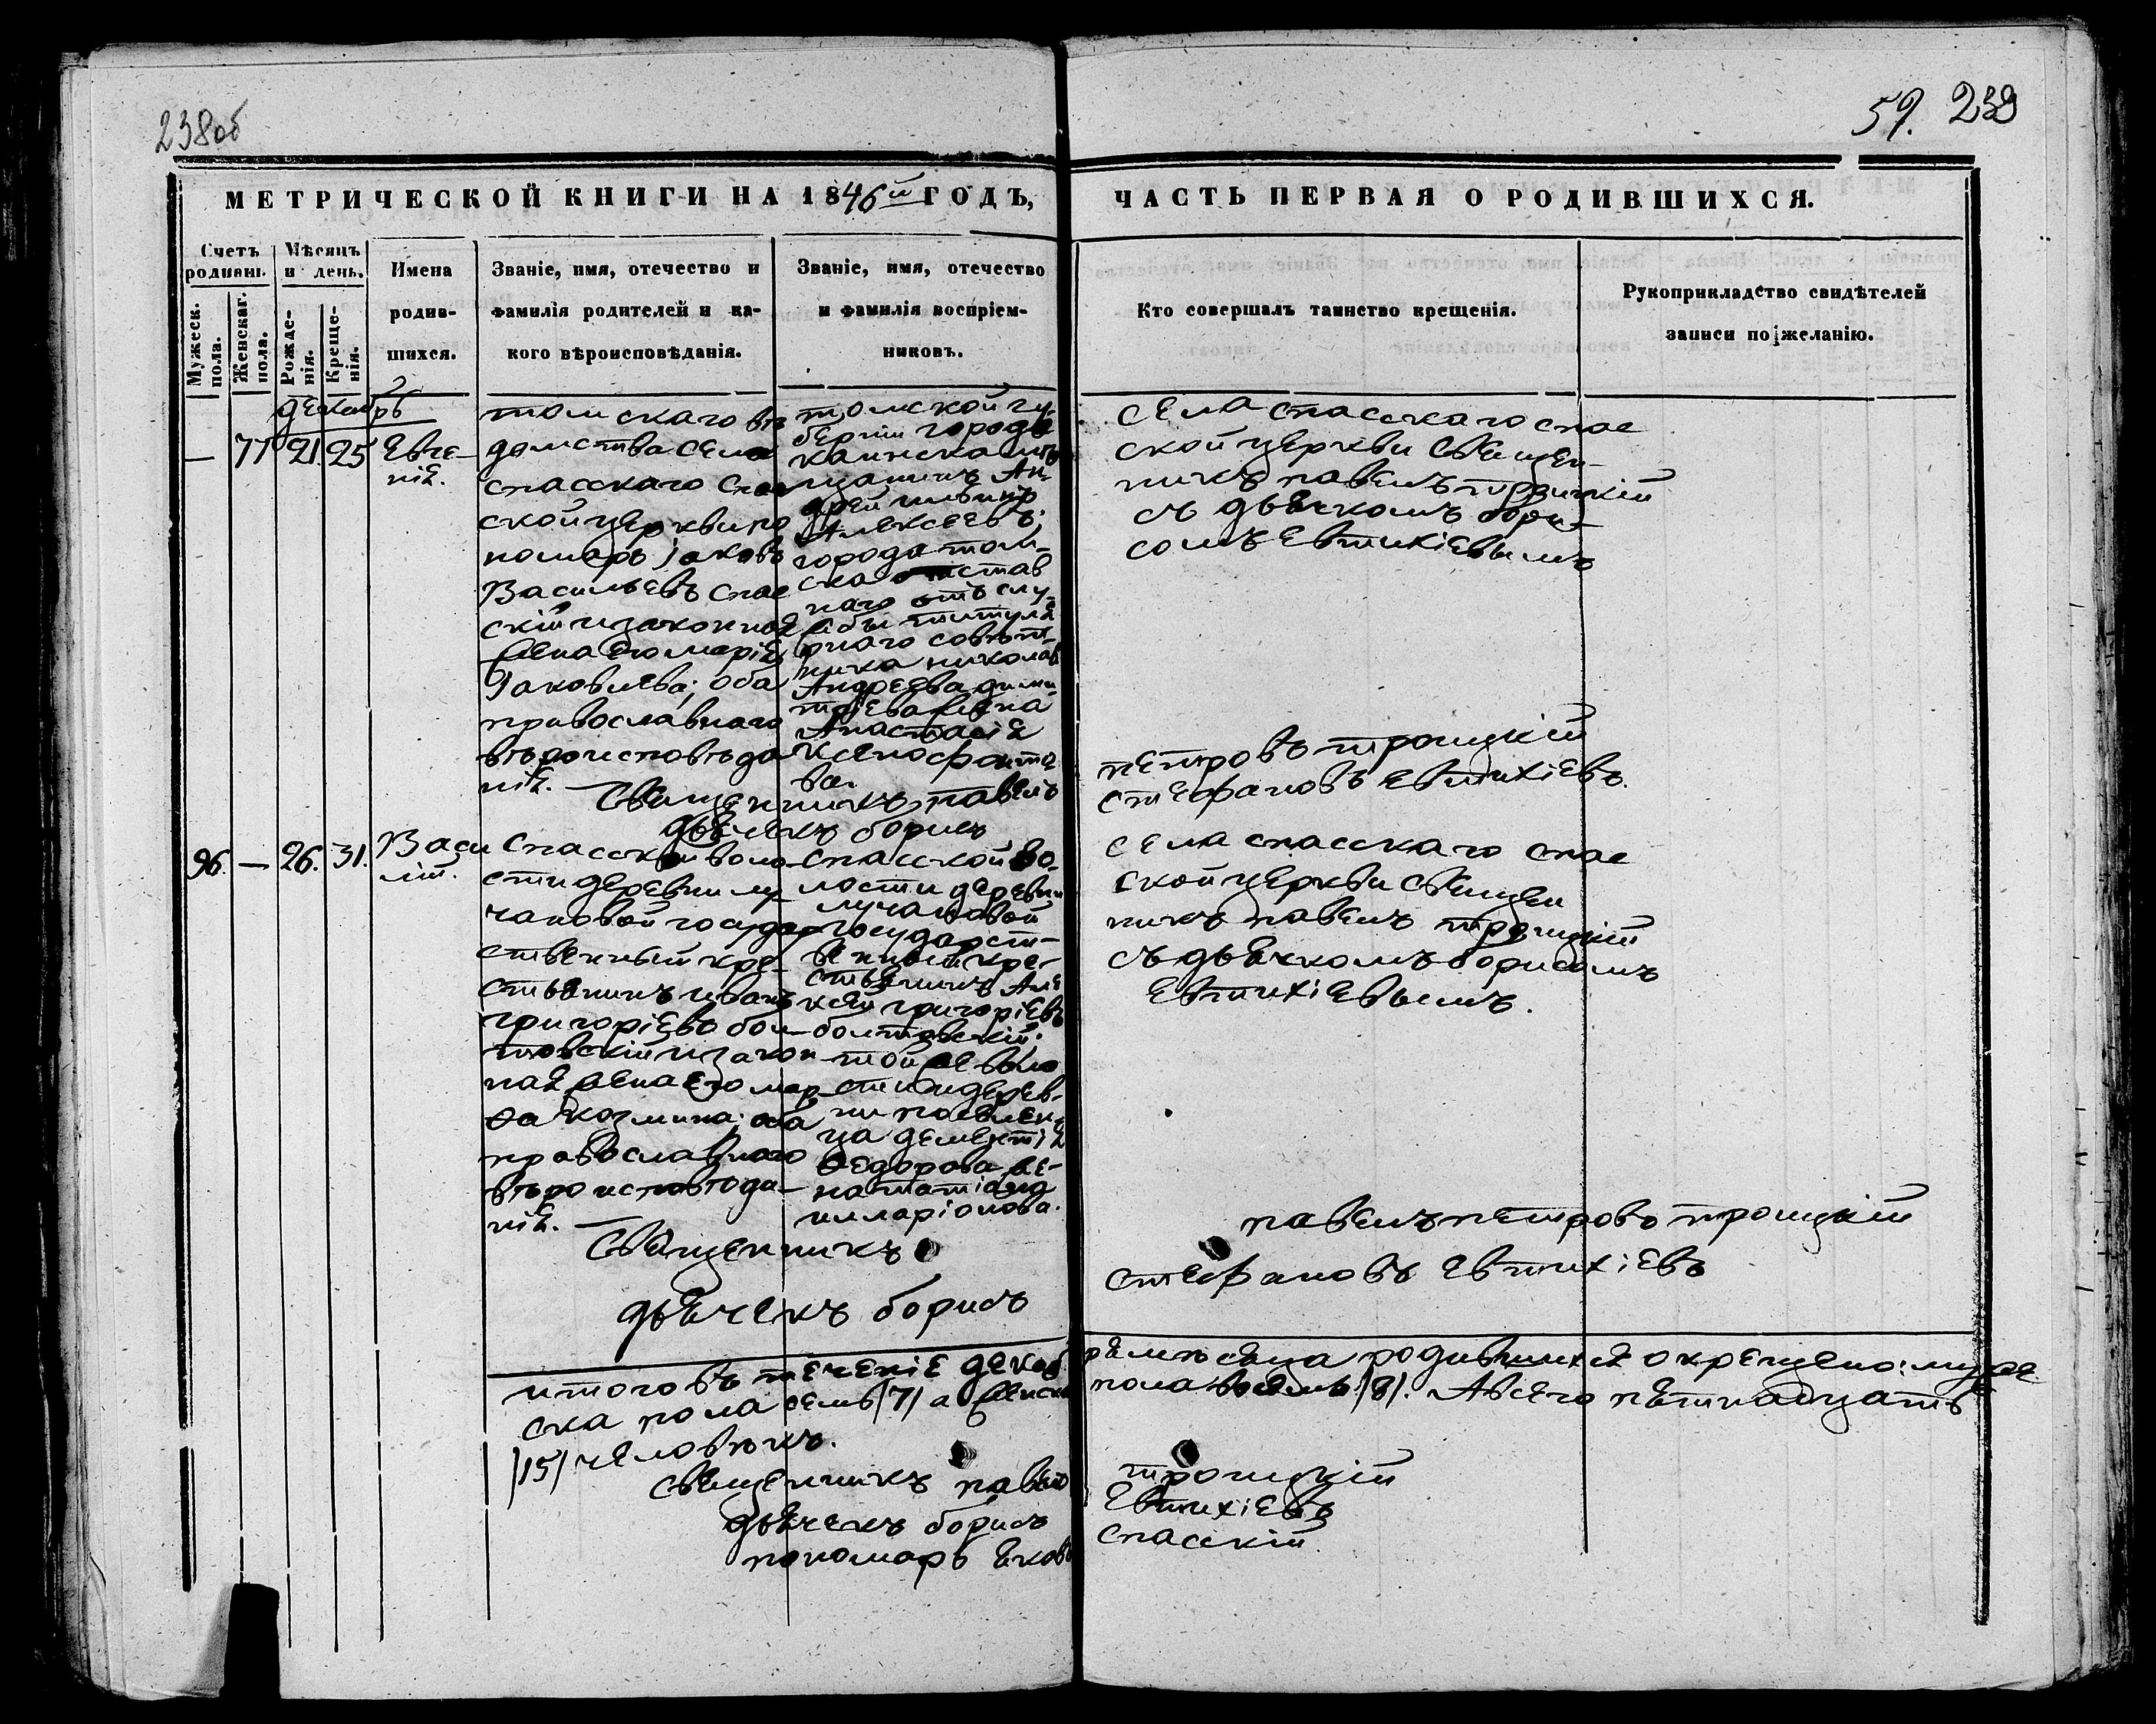 238об
59. 239
МЕТРИЧЕСКОЙ КНИГИ НА 1846й ГОДЪ,
ЧАСТЬ ПЕРВАЯ О РОДИВШИХСЯ.
Счетъ родивш.
Мужеск. пола.
Женскаг. пола.
Мѣсяцъ и день.
Рожде-нія.
Креще-нія.
Имена
родив-
шихся.
Званіе, имя, отечество и
фамилія родителей и ка-
кого вѣроисповѣданія.
Званіе, имя, отечество
и фамилія воспріем-
никовъ.
Кто совершалъ таинство крещенія.
Рукоприкладство свидѣтелей
записи по желанію.
декабрь
— 77 21. 25 Евге-
ніѣ.
томскаго вѣ
домства села
спасскаго спас
ской церкви по
номарь іаковъ
Васильевъ спас
скій и законнаѧ
жена его маріѧ
Іаковлева; оба
православнаго
вѣроисповѣда
ніѧ.
томской гу-
берніи города
каинска мѣ
щанинъ Ан-
дрей
Алексеевъ;
города том-
ска отстав
наго отъ слу-
жбы титуля
рнаго совѣт-
ника николая
Андреева дими-
тріева жена
Анастасіѧ
ксенофонто
ва.
села спасскаго спас
ской церкви свѧщен-
никъ павелъ троицкій
съ дьѧчкомъ бори-
сомъ Евтихіевымъ
Свѧщенникъ павелъ
петровъ троицкій
дьѧчекъ борисъ
стефановъ Евтихіевъ.
96. — 26. 31. Васи
лій.
Спасской воло-
сти деревни лу-
чановой государ
ственный кре-
стьѧнинъ иванъ
григоріевъ бол-
товскій и закон
наѧ жена его мар-
ѳа козмина; оба
православнаго
вѣроисповѣда-
ніѧ.
спасской во-
лости деревни
лучановой
государст-
венный кре-
стьѧнинъ Але
ксей григоріевъ
болтовскій;
той же воло
сти и дерев-
ни поселен-
ца дементіѧ
Ѳедорова же-
на татіана
илларіонова.
села спасскаго спас
ской церкви свѧщен
никъ павелъ троицкій
съ дьѧчкомъ борисомъ
Евтихіевымъ.
Свѧщенникъ
павелъ петровъ троицкій
дьѧчекъ борисъ
стефановъ Евтихіевъ
итого въ теченіе декаб
рѧ мѣсѧца родившихсѧ окрещено: муже
ска пола семь /7/ а женска
пола восемь /8/. А всего пѧтнадцать
/15/ человѣкъ.
свѧщенникъ павелъ
троицкій
дьѧчекъ борисъ
Евтихіевъ
пономарь ѧковъ
спасскій.